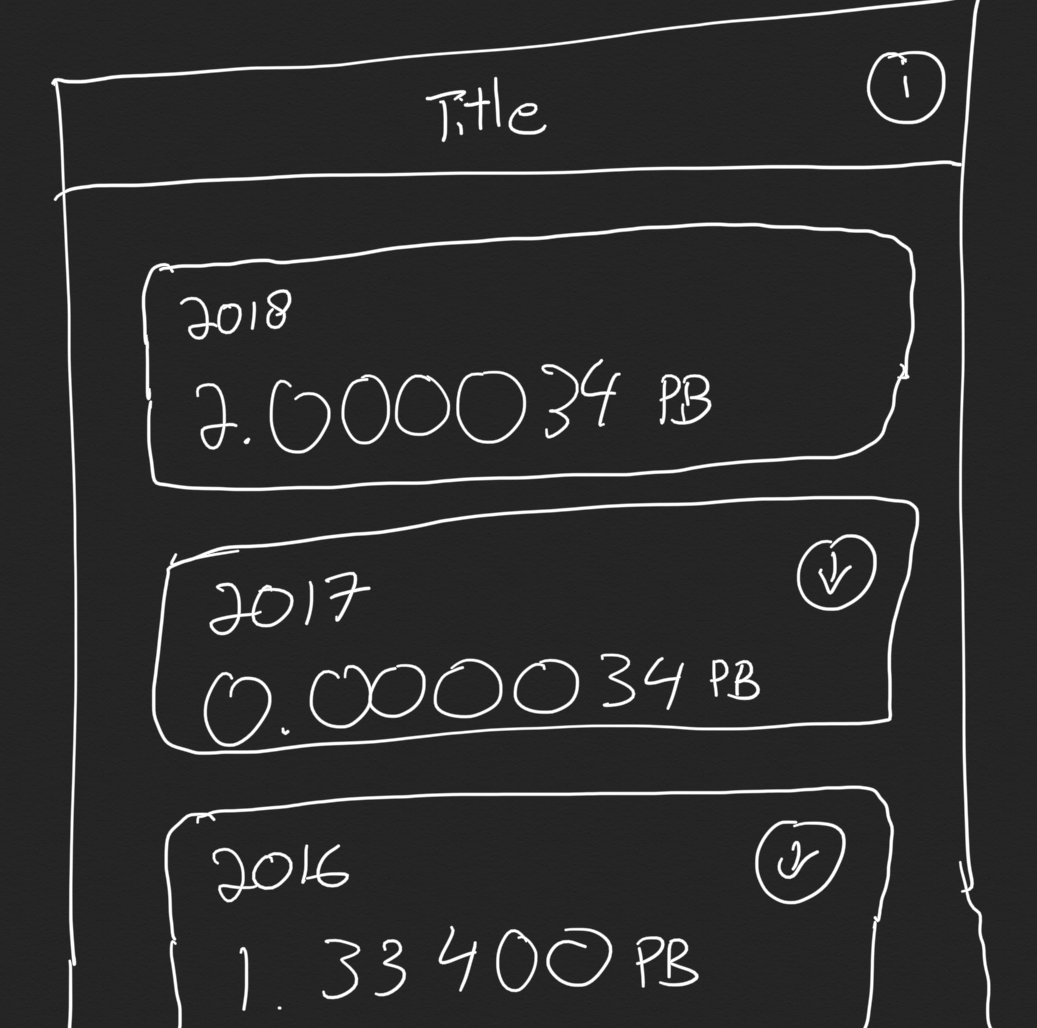 Title
i
2018
2.000034 PB
2017
0.000034 PB
2016
1.33400 PB